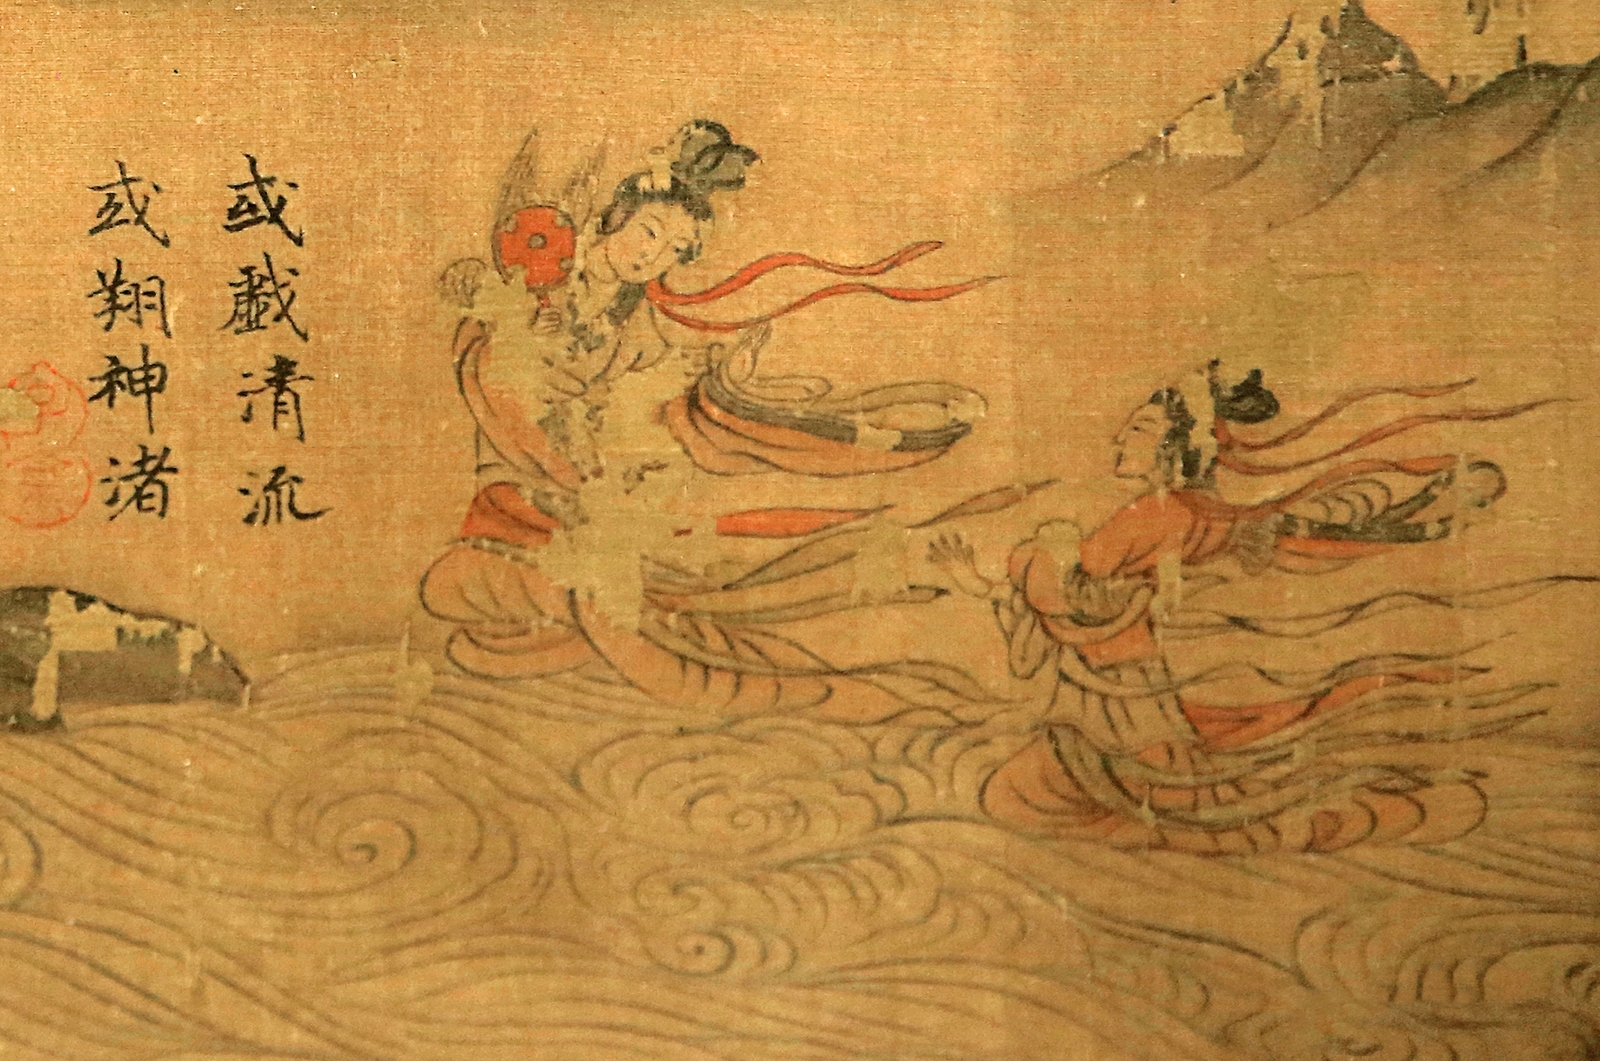 或戲清流
或翔神渚